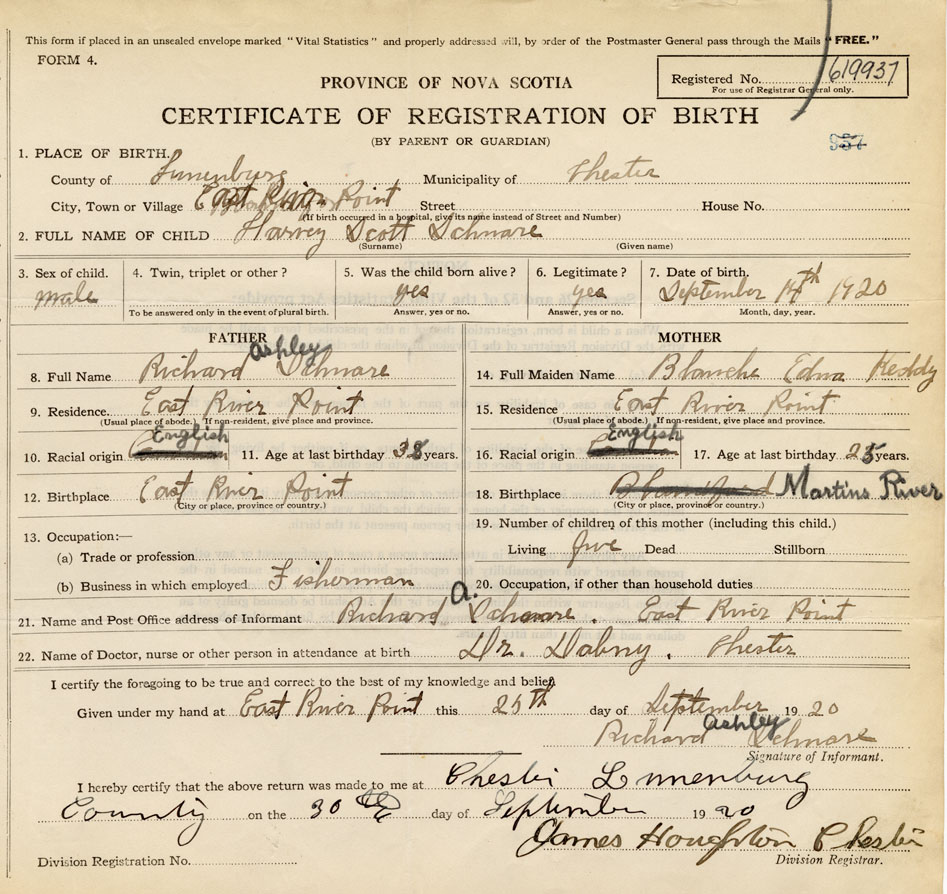 This form if placed in an unsealed envelope marked "Vital Statistics" and properly addressed will, by order of the Postmaster General pass through the Mails "FREE."
FORM 4.
Registered No. 619937
For use of Registrar General only.
PROVINCE OF NOVA SCOTIA
CERTIFICATE OF REGISTRATION OF BIRTH
(BY PARENT OR GUARDIAN)
957
1. PLACE OF BIRTH.
County of Lunenburg Municipality of Chester
City, Town or Village East River Point Street House No.
(If birth occurred in a hospital, give its name instead of Street and Number)
2. FULL NAME OF CHILD Harvey Scott Schnare
(Surname) (Given name)
3. Sex of child. 4. Twin, triplet or other? 5. Was the child born alive? 6. Legitimate? 7. Date of birth.
male yes yes September 14th 1920
To be answered only in the event of plural birth. Answer, yes or no. Answer, yes or no. Month, day, year.
FATHER MOTHER
8. Full Name Richard Ashley Schnare 14. Full Maiden Name Blanche Edna Keddy
9. Residence. East River Point 15. Residence East River Point
(Usual place of abode.) If non-resident, give place and province. (Usual place of abode.) If non-resident, give place and province.
10. Racial origin English 11. Age at last birthday 38 years. 16. Racial origin English 17. Age at last birthday 25 years.
12. Birthplace East River Point 18. Birthplace Blandford Martins River
(City or place, province or country.) (City or place, province or country.)
19. Number of children of this mother (including this child.)
13. Occupation:—
Living five Dead Stillborn
(a) Trade or profession
(b) Business in which employed Fisherman 20. Occupation, if other than household duties
21. Name and Post Office address of Informant Richard A. Schnare. East River Point
22. Name of Doctor, nurse or other person in attendance at birth Dr. Hebb
I certify the foregoing to be true and correct to the best of my knowledge and belief.
Given under my hand at East River Point this 25th day of September 1920
Richard Ashley Schnare
Signature of Informant.
I hereby certify that the above return was made to me at Chester Lunenburg
County on the 30th day of September 1920
James Houghton Chester
Division Registration No. Division Registrar.